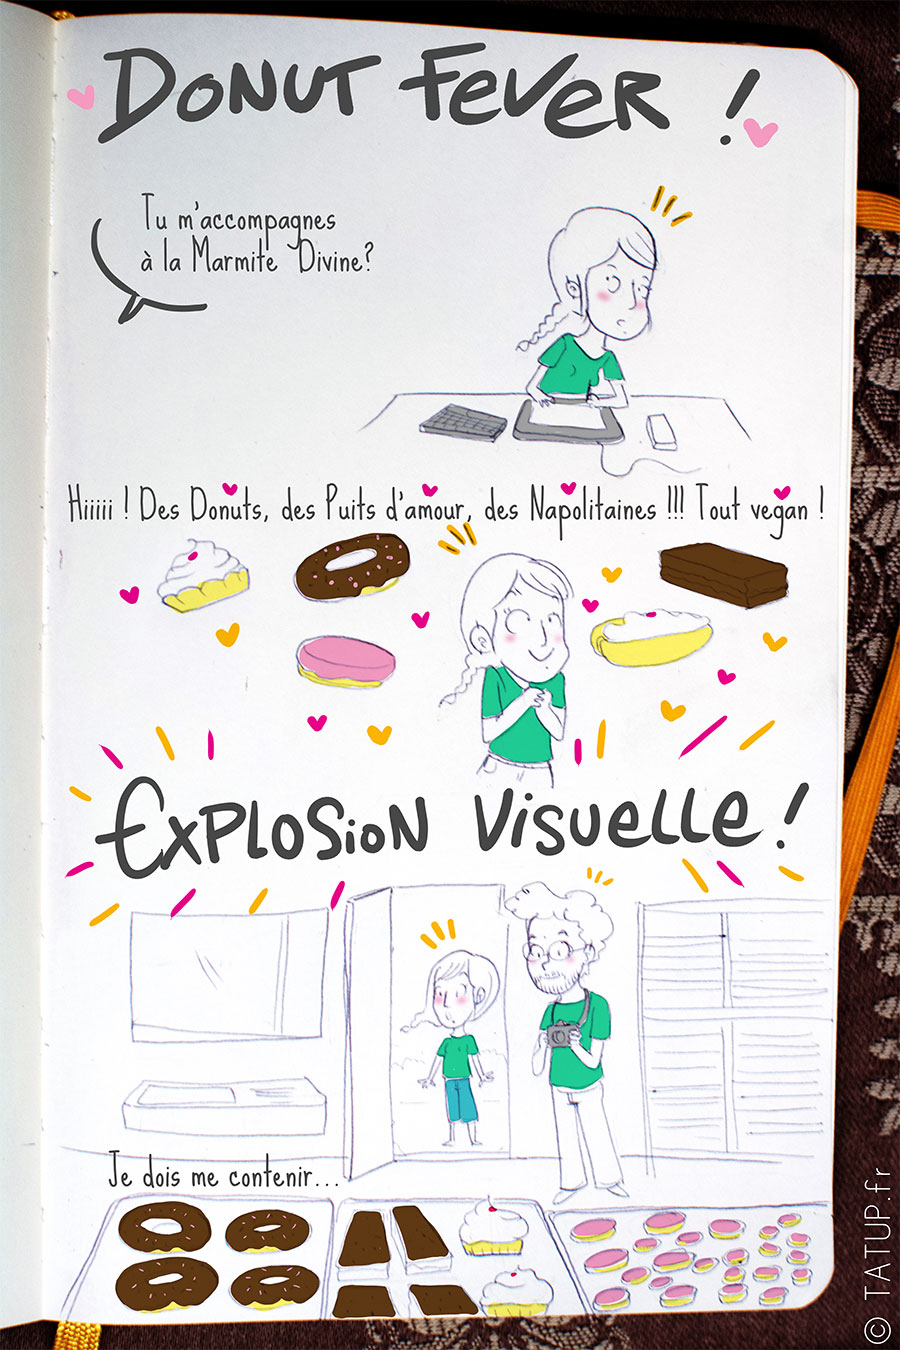 DONUT FEVER !
Tu m'accompagnes
à la Marmite Divine?
Hiiiii ! Des Donuts, des Puits d'amour, des Napolitaines !!! Tout vegan !
EXPLOSION VISUELLE !
Je dois me contenir...
© TATUP.fr